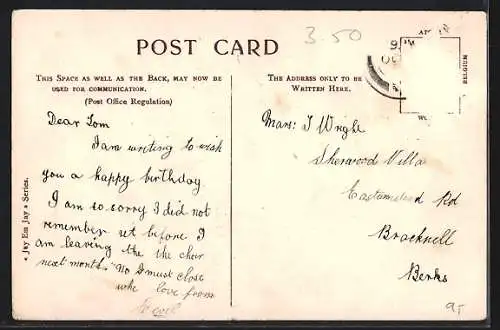 3.50
POST CARD
THIS SPACE AS WELL AS THE BACK, MAY NOW BE
USED FOR COMMUNICATION.
(Post Office Regulation)
THE ADDRESS ONLY TO BE
WRITTEN HERE.
BELGIUM
Dear Tom
I am writing to wish
you a happy birthday
I am so sorry I did not
remember it before I
am leaving the the choir
next month. No I must close
with love from
Mars: T Wright
Sherwood Villa
Easthampstead Rd
Bracknell
Berks
« Jay Em Jay » Series.